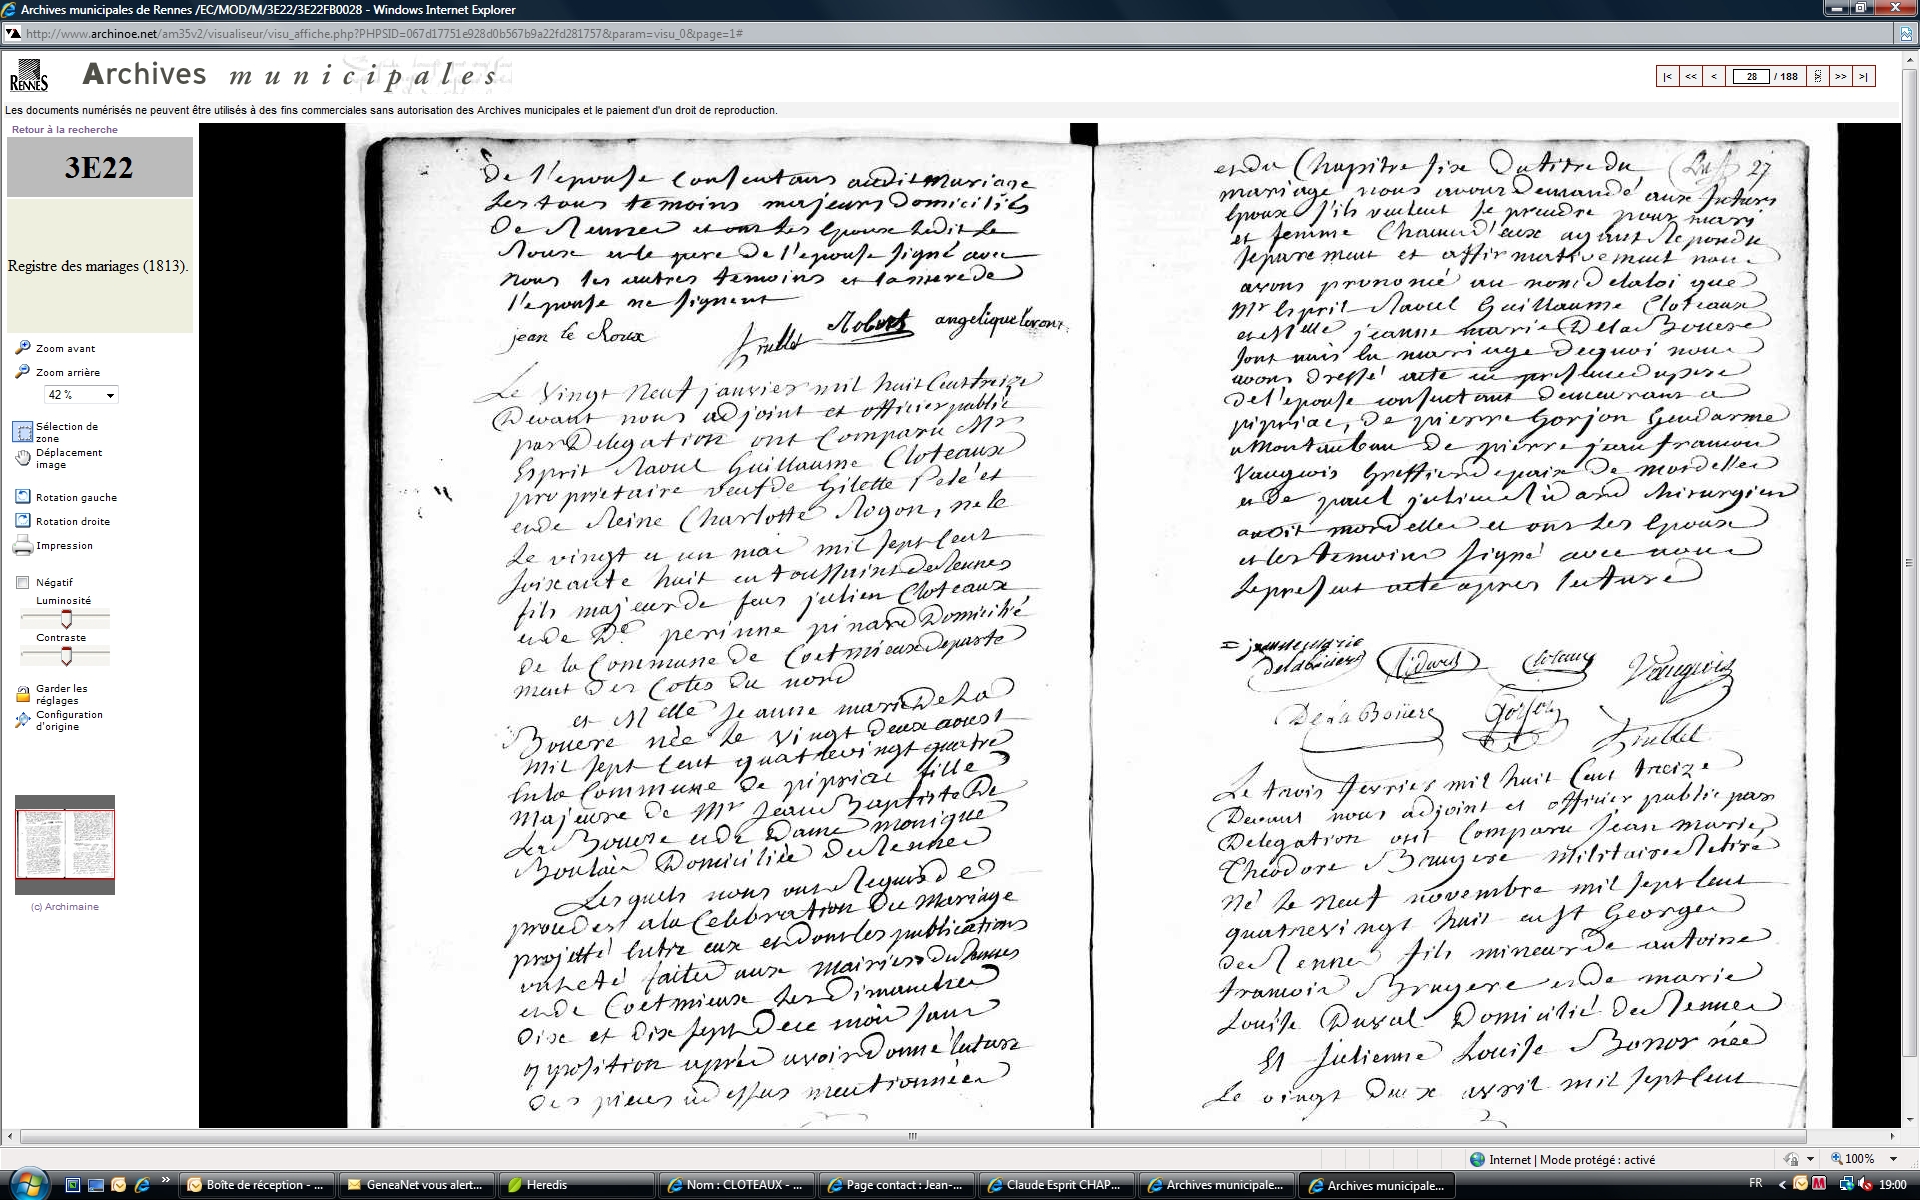 Archives municipales de Rennes /EC/MOD/M/3E22/3E22FB0028 - Windows Internet Explorer
http://www.archinoe.net/am35v2/visualiseur/visu_affiche.php?PHPSID=067d17751e928d0b567b9a22fd281757&param=visu_0&page=1#
RENNES
Archives municipales
|< << < 28 / 188 >> >|
Les documents numérisés ne peuvent être utilisés à des fins commerciales sans autorisation des Archives municipales et le paiement d'un droit de reproduction.
Retour à la recherche
3E22
Registre des mariages (1813).
Zoom avant
Zoom arrière
42 %
Sélection de
zone
Déplacement
image
Rotation gauche
Rotation droite
Impression
Négatif
Luminosité
Contraste
Garder les
réglages
Configuration
d'origine
(c) Archimaine
De l'epouse Consentans audit mariage
Les tous temoins majeurs Domiciliés
De Rennes et ont Les Epoux Ledit Le
Roux et le pere de l'epouse signé avec
nous les autres temoins et la mere de
l'epouse ne signent
jean le Roux Trublet Robert angelique
Le vingt neuf janvier mil huit Cent treize
Devant nous adjoint et officier public
par Delegation ont Comparu Mr
Esprit Raoul Guillaume Cloteaux
proprietaire veuf de Gilette Pelé et
et de Reine Charlotte Rogon, né le
Le vingt et un mai mil sept Cent
soixante huit en toussaint de Rennes
fils majeur de feus julien Cloteaux
et de De perinne pinard Domicilié
de la Commune de Coetmieux departe
ment Des Cotes du nord
et Melle Jeanne marie De La
Bouere née Le vingt deux aoust
mil sept Cent quatrevingt quatre
En la Commune de pipriac fille
majeure de Mr Jean Baptiste De
La Bouere et de Dame monique
Boulais Domiciliée De Rennes
Lesquels nous ont Requis De
proceder a la Celebration Du Mariage
projetté Entre eux et Dont les publications
ont eté faites aux Mairies De Rennes
et de Coetmieux Les Dimanches
Dix et Dix sept De ce mois sans
opposition après avoir Donné lecture
Des pieces ci dessus mentionnées
27
et du Chapitre six Du titre du
mariage nous avons Demandé aux futurs
Epoux s'ils veulent se prendre pour mari
et femme Chacun d'eux ayant Repondu
separement et affirmativement nous
avons prononcé au nom de la loi que
Mr Esprit Raoul Guillaume Cloteaux
et Melle jeanne marie De la Bouere
sont unis En mariage De quoi nous
avons Dressé acte en presence du pere
de l'épouse consentant demeurant a
pipriac, De pierre Gorjon Gendarme
a Montauban De pierre jean francois
Vauguois Greffier de paix De mordelles
et de paul julien Ridard chirurgien
audit mordelles et ont Les Epoux
et les temoins signé avec nous
Le present acte apres lecture
= jeanne marie
delabouere Ridard Cloteaux Vauguois
De La Boüere Gorjon Trublet
Le trois fevrier mil huit Cent treize
Devant nous adjoint et officier public par
Delegation ont Comparu Jean Marie
Théodore Bruyere Militaire Retiré
Né Le neuf novembre mil sept Cent
quatrevingt huit en St George
de Rennes fils mineur de antoine
francois Bruyere et de marie
Louise Duval Domicilié De Rennes
Et Julienne Louise Bonor née
Le vingt Deux avril mil sept Cent
Internet | Mode protégé : activé
100%
Boîte de réception - ...
GeneaNet vous alert...
Heredis
Nom : CLOTEAUX - ...
Page contact : Jean-...
Claude Esprit CHAP...
Archives municipale...
Archives municipale...
FR
19:00